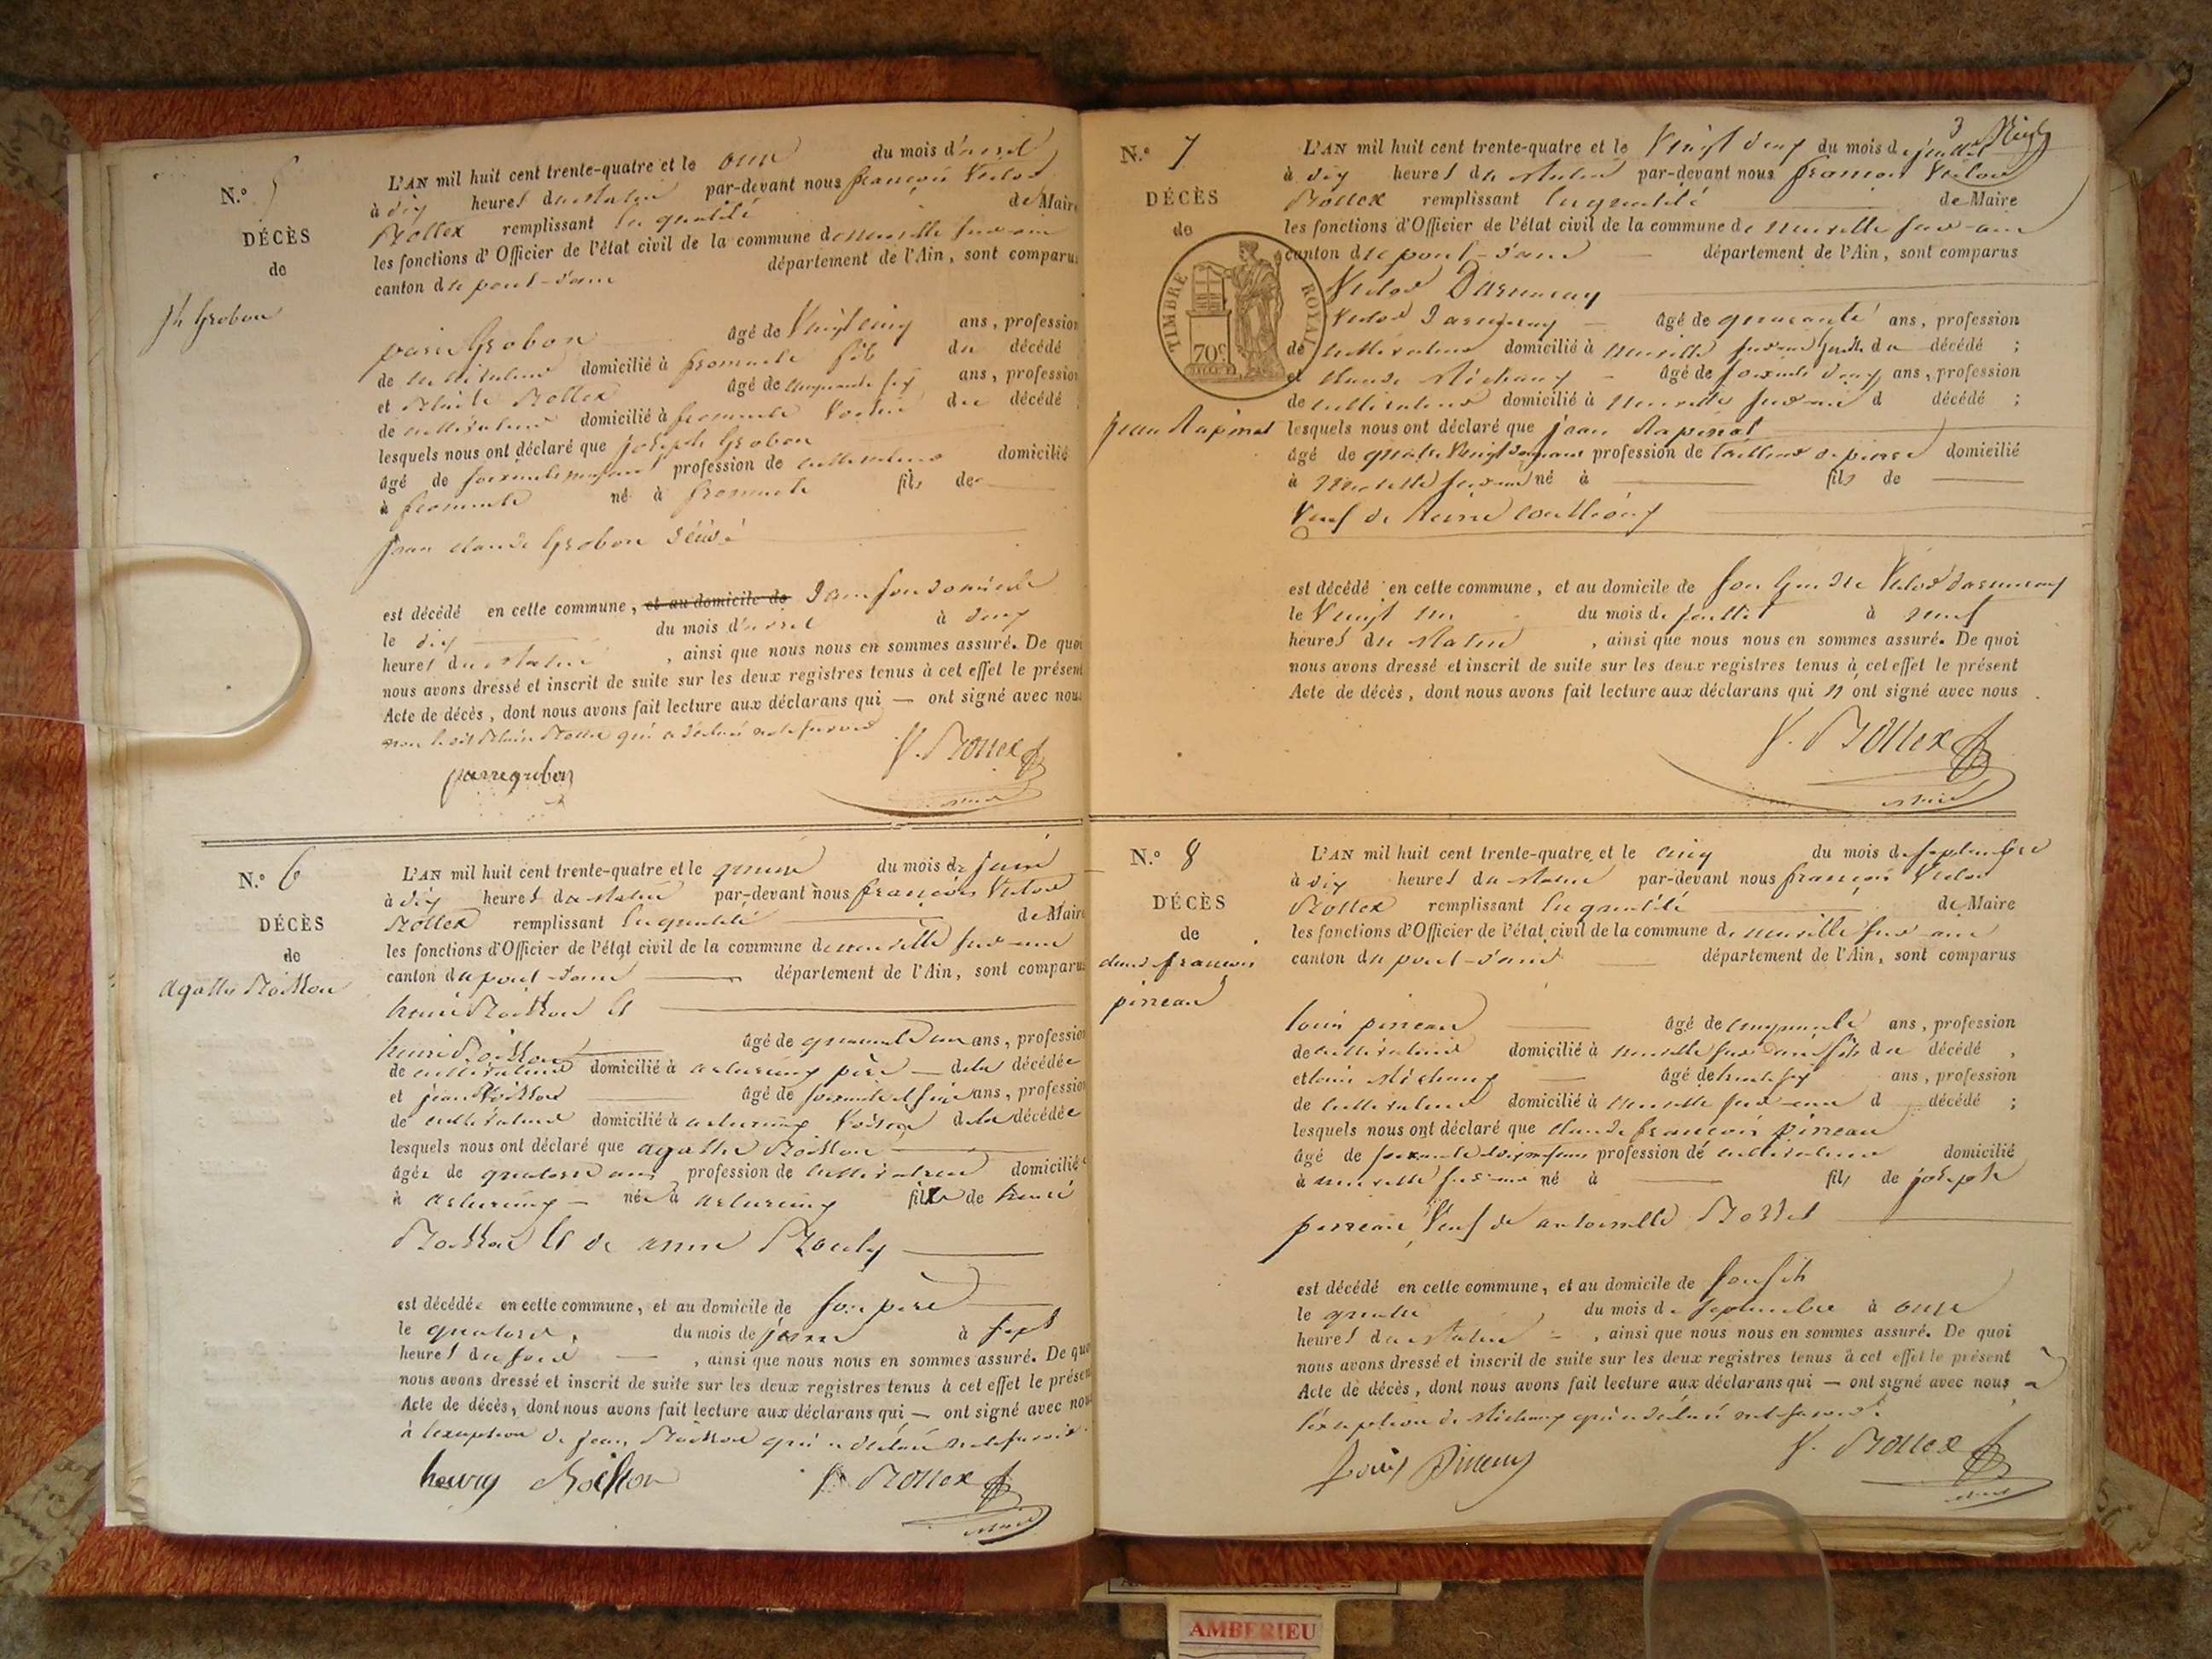 N.° 5
DÉCÈS
de
jh Grobon
L'AN mil huit cent trente-quatre et le onze du mois d'avril
à dix heures du matin par-devant nous françois Victor
Bollex remplissant en qualité de Maire
les fonctions d'Officier de l'état civil de la commune de neuville sur ain
canton de pont-d'ain département de l'Ain, sont comparus
Grobon âgé de Vingt cinq ans, profession
de cultivateur domicilié à fromente fils du décédé
et Bollex âgé de cinquante six ans, profession
de cultivateur domicilié à fromente Voisin du décédé
lesquels nous ont déclaré que joseph Grobon
âgé de soixante profession de cultivateur domicilié
à fromente né à fromente fils de
jean claude Grobon
est décédé en cette commune, et au domicile de dans son domicile
le dix du mois d'avril à deux
heures du matin, ainsi que nous nous en sommes assuré. De quoi
nous avons dressé et inscrit de suite sur les deux registres tenus à cet effet le présent
Acte de décès, dont nous avons fait lecture aux déclarans qui — ont signé avec nous
qui a déclaré ne le savoir
V. Bollex
maire
N.° 6
DÉCÈS
de
agathe Boisson
L'AN mil huit cent trente-quatre et le quinze du mois de juin
à dix heures du matin par-devant nous françois Victor
Bollex remplissant en qualité de Maire
les fonctions d'Officier de l'état civil de la commune de neuville sur ain
canton du pont-d'ain département de l'Ain, sont comparus
henri Boisson
henri Boisson âgé de ans, profession
de cultivateur domicilié à père de la décédée
et jean Boisson âgé de soixante ans, profession
de cultivateur domicilié à Voisin de la décédée
lesquels nous ont déclaré que agathe Boisson
âgée de quatorze ans profession de cultivatrice domiciliée
à née à fille de henri
Boisson et de anne
est décédée en cette commune, et au domicile de son père
le quatorze du mois de juin à sept
heures du soir, ainsi que nous nous en sommes assuré. De quoi
nous avons dressé et inscrit de suite sur les deux registres tenus à cet effet le présent
Acte de décès, dont nous avons fait lecture aux déclarans qui — ont signé avec nous
à l'exception de jean Boisson qui a déclaré ne le savoir
henry Boisson V. Bollex
maire
3
N.° 7
DÉCÈS
de
TIMBRE ROYAL
70c
jean Rapinat
L'AN mil huit cent trente-quatre et le Vingt deux du mois de juillet
à dix heures du matin par-devant nous françois Victor
Bollex remplissant en qualité de Maire
les fonctions d'Officier de l'état civil de la commune de neuville sur ain
canton de pont-d'ain département de l'Ain, sont comparus
Victor
Victor âgé de quarante ans, profession
de cultivateur domicilié à neuville sur ain gendre du décédé ;
et claude Michaux âgé de soixante deux ans, profession
de cultivateur domicilié à neuville sur ain d décédé ;
lesquels nous ont déclaré que jean Rapinat
âgé de profession de tailleur de pierre domicilié
à neuville sur ain né à fils de
Veuf de
est décédé en cette commune, et au domicile de son gendre Victor
le Vingt un du mois de juillet à neuf
heures du matin, ainsi que nous nous en sommes assuré. De quoi
nous avons dressé et inscrit de suite sur les deux registres tenus à cet effet le présent
Acte de décès, dont nous avons fait lecture aux déclarans qui n'ont signé avec nous
V. Bollex
maire
N.° 8
DÉCÈS
de
claude françois
pineau
L'AN mil huit cent trente-quatre et le cinq du mois de septembre
à dix heures du matin par-devant nous françois Victor
Bollex remplissant en qualité de Maire
les fonctions d'Officier de l'état civil de la commune de neuville sur ain
canton du pont-d'ain département de l'Ain, sont comparus
louis pineau âgé de cinquante ans, profession
de cultivateur domicilié à neuville sur ain fils du décédé,
et louis Michaux âgé de trente six ans, profession
de cultivateur domicilié à neuville sur ain d décédé ;
lesquels nous ont déclaré que claude françois pineau
âgé de profession de cultivateur domicilié
à neuville sur ain né à fils de joseph
pineau Veuf de antoinette
est décédé en cette commune, et au domicile de son fils
le quatre du mois de septembre à onze
heures du matin, ainsi que nous nous en sommes assuré. De quoi
nous avons dressé et inscrit de suite sur les deux registres tenus à cet effet le présent
Acte de décès, dont nous avons fait lecture aux déclarans qui — ont signé avec nous a
l'exception de Michaux qui a déclaré ne le savoir.
V. Bollex
maire
AMBERIEU